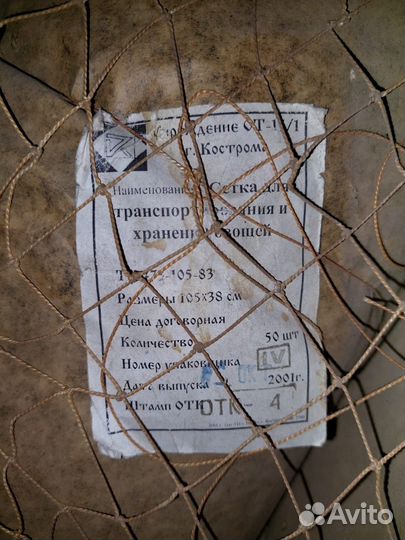 Учреждение ОТ-15/1
г. Кострома
Наименование Сетка для
транспортирования и
хранения овощей
105-83
Размеры 105х38 см
Цена договорная
Количество 50 шт
Номер упаковщика
LV
Дата выпуска 2001г.
Штамп ОТК ОТК- 4
Avito